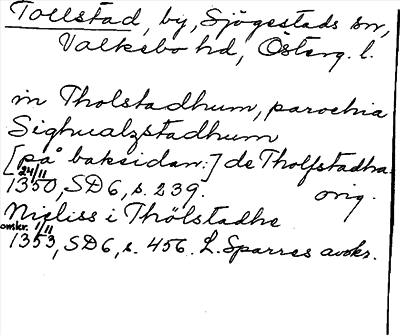 Tollstad, by, Sjögestads sn,
Valkebo hd, Österg. l.
in Tholstadhum, parochia
Sighualzstadhum
[på baksidan:] de Tholfstadha
24/11
1350, SD6, s. 239. orig.
Nigliss i Thölstadhe
omkr. 1/11
1353, SD6, s. 456. L. Sparres avskr.